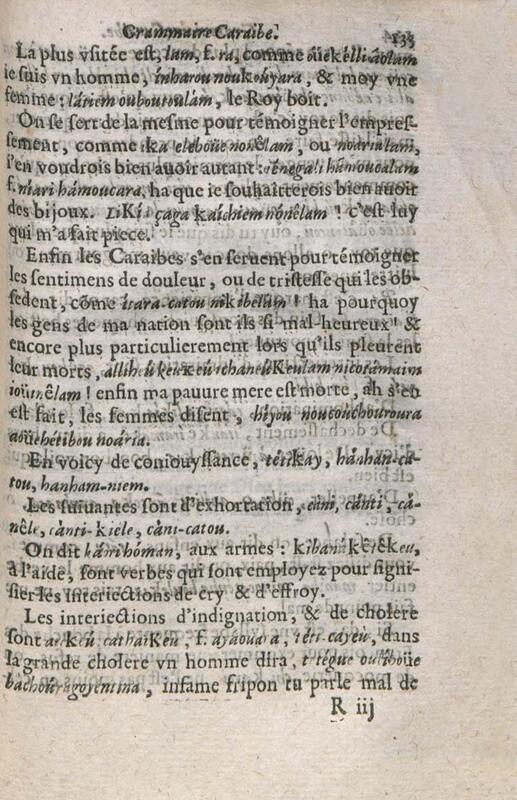 Grammaire Caraibe. 135
La plus vsitée est, lam, f. ra, comme oüekélli-áolam
ie suis vn homme, inharou noukoúyara, & moy vne
femme: látiem oubouroulam, le Roy boit.
On se sert de la mesme pour témoigner l'empres-
sement, comme ika eleboüe nonêlam, ou noária lam,
i'en voudrois bien auoir autant: énegali hámoucalam
f. niari hámoucara, ha que ie souhaitterois bien auoir
des bijoux. LiKíi çaga kaíchiem nónêlam! c'est luy
qui m'a fait piece.
Enfin les Caraibes s'en seruent pour témoigner
les sentimens de douleur, ou de tristesse qui les ob-
sedent, cóme itara-catou nikibélam! ha pourquoy
les gens de ma nation sont ils si mal-heureux? &
encore plus particulierement lors qu'ils pleurent
leur morts,
enfin ma pauure mere est morte, ah s'en
est fait, les femmes disent, bíjou noucouchouroura
aoüchétibou noária.
En voicy de coniouyssance, tétikay, hánhan-ca-
tou, hanham-niem.
Les suiuantes sont d'exhortation, cáni, cánti, cá-
nêle, cànti-kiele, càni-catou.
On dit kámihóman, aux armes: kibanákêrêkeu,
à l'aide, sont verbes qui sont employez pour signi-
fier les interiections de cry & d'effroy.
Les interiections d'indignation, & de cholere
sont arkeú cathaiKeú, f. ayáouara, téti-cayeú, dans
la grande cholere vn homme dira,
infame fripon tu parle mal de
R iij